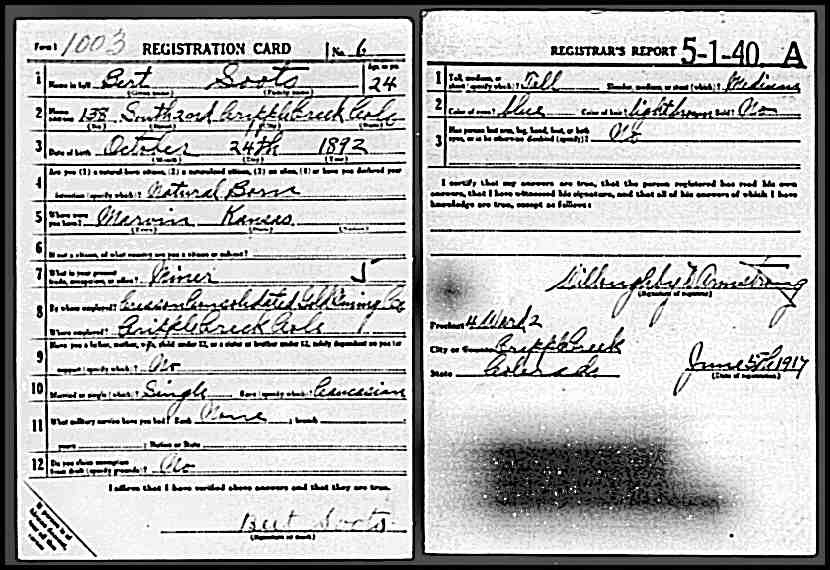 Form 1 1003 REGISTRATION CARD No. 6
1 Name in full Bert Soots Age, in yrs. 24
(Given name) (Family name)
2 Home address 138 South 2nd Cripple Creek Colo
(No.) (Street) (City) (State)
3 Date of birth October 24th 1892
(Month) (Day) (Year)
4 Are you (1) a natural-born citizen, (2) a naturalized citizen, (3) an alien, (4) or have you declared your
intention (specify which)? Natural Born
5 Where were you born? Marvin Kansas
(Town) (State) (Nation)
6 If not a citizen, of what country are you a citizen or subject?
7 What is your present trade, occupation, or office? Miner
8 By whom employed? Consolidated Gold Mining Co
Where employed? Cripple Creek Colo
9 Have you a father, mother, wife, child under 12, or a sister or brother under 12, solely dependent on you for
support (specify which)? No
10 Married or single (which)? Single Race (specify which)? Caucasian
11 What military service have you had? Rank None ; branch
years ; Nation or State
12 Do you claim exemption from draft (specify grounds)? No
I affirm that I have verified above answers and that they are true.
Bert Soots
(Signature or mark)
REGISTRAR'S REPORT 5-1-40 A
1 Tall, medium, or short (specify which)? Tall Slender, medium, or stout (which)? Medium
2 Color of eyes? blue Color of hair? light brown Bald? No
3 Has person lost arm, leg, hand, foot, or both eyes, or is he otherwise disabled (specify)? No
I certify that my answers are true, that the person registered has read his own
answers, that I have witnessed his signature, and that all of his answers of which I have
knowledge are true, except as follows:
Willoughby D Armstrong
(Signature of registrar)
Precinct 4 Ward 2
City or County Cripple Creek
State Colorado June 5th 1917
(Date of registration)